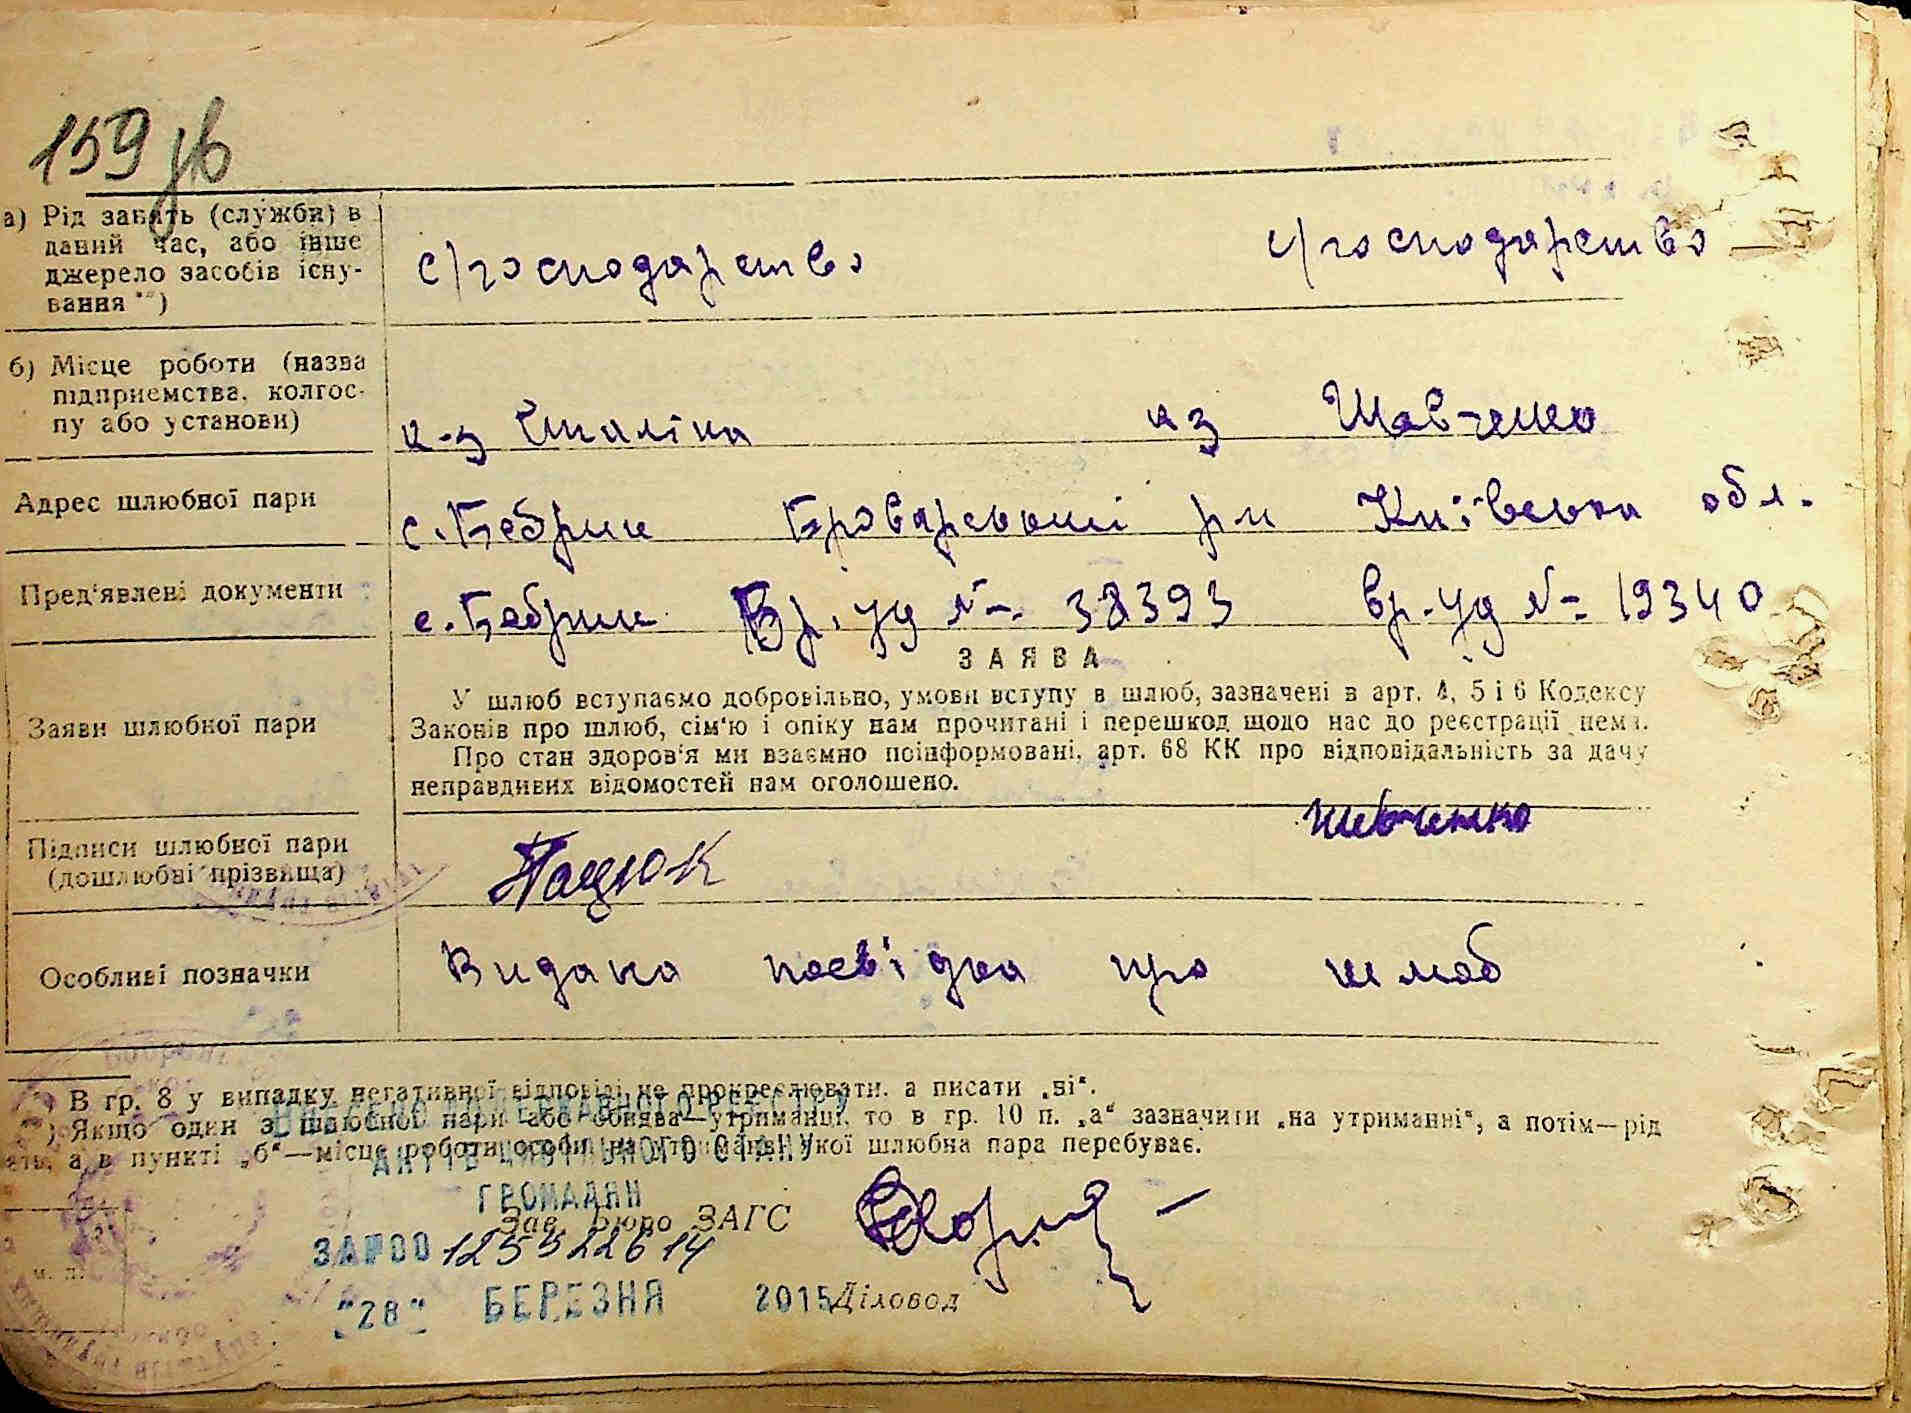 159 зв
а) Рід занять (служби) в
даний час, або інше
джерело засобів існу-
вання **)
с/господарство с/господарство
б) Місце роботи (назва
підприємства, колгос-
пу або установи)
к-з Сталіна кз Шевченко
Адрес шлюбної пари
с. Бобрик Броварський р-н Київська обл.
Пред'явлені документи
с. Бобрик Вр. уд № 38393 вр. уд № 19340
ЗАЯВА
Заяви шлюбної пари
У шлюб вступаємо добровільно, умови вступу в шлюб, зазначені в арт. 4, 5 і 6 Кодексу
Законів про шлюб, сім'ю і опіку нам прочитані і перешкод щодо нас до реєстрації нема.
Про стан здоров'я ми взаємно поінформовані, арт. 68 КК про відповідальність за дачу
неправдивих відомостей нам оголошено.
Підписи шлюбної пари
(дошлюбні прізвища)
Пацюк Шевченко
Особливі позначки
Видана посвідка про шлюб
*) В гр. 8 у випадку негативної відповіді не прокреслювати, а писати „ні“.
Якщо один з шлюбної пари або обидва—утриманці, то в гр. 10 п. „а“ зазначити „на утриманні“, а потім—рід
а в пункті „б“—місце роботи особи, на утриманні якої шлюбна пара перебуває.
ДЕРЖАВНОГО РЕЄСТРУ
АКТІВ ЦИВІЛЬНОГО СТАНУ
ГРОМАДЯН
Зав. Бюро ЗАГС
ЗА №00 125522614
м. п.
"28" БЕРЕЗНЯ 2015
Діловод